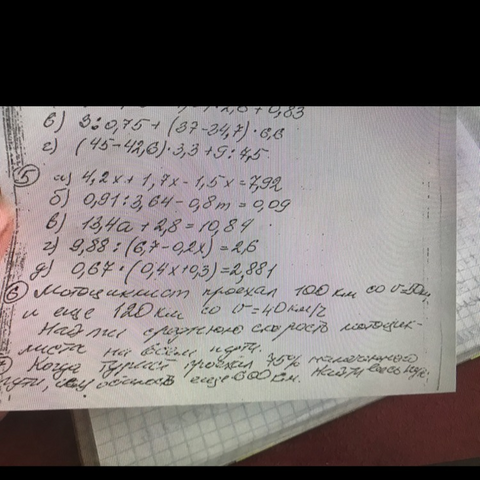 2,8 + 0,83
в) 3:0,75 + (37-34,7)·6,6
г) (45-42,6)·3,3+9:4,5
5 а) 4,2x + 1,7x - 1,5x = 7,92
б) 0,91:3,64 - 0,8m = 0,09
в) 13,4a + 2,8 = 10,84
г) 9,88:(6,7-0,2x) = 2,6
д) 0,67·(0,4x+0,3) = 2,881
6 Мотоциклист проехал 100 км со v=50км
и еще 120 км со v=40км/ч
Найти среднюю скорость мотоцик-
листа на всём пути.
Когда турист проехал 75% намеченного
пути, ему осталось еще 600 км. Найти весь путь